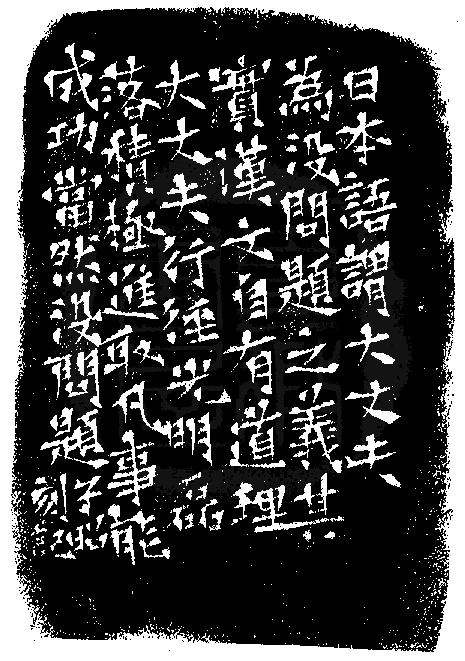 日本語謂大丈夫
為没問題之義其
實漢文自有道理
大丈夫行徑光明磊
落積極進取凡事能
成功當然没問題
子昭
刻記